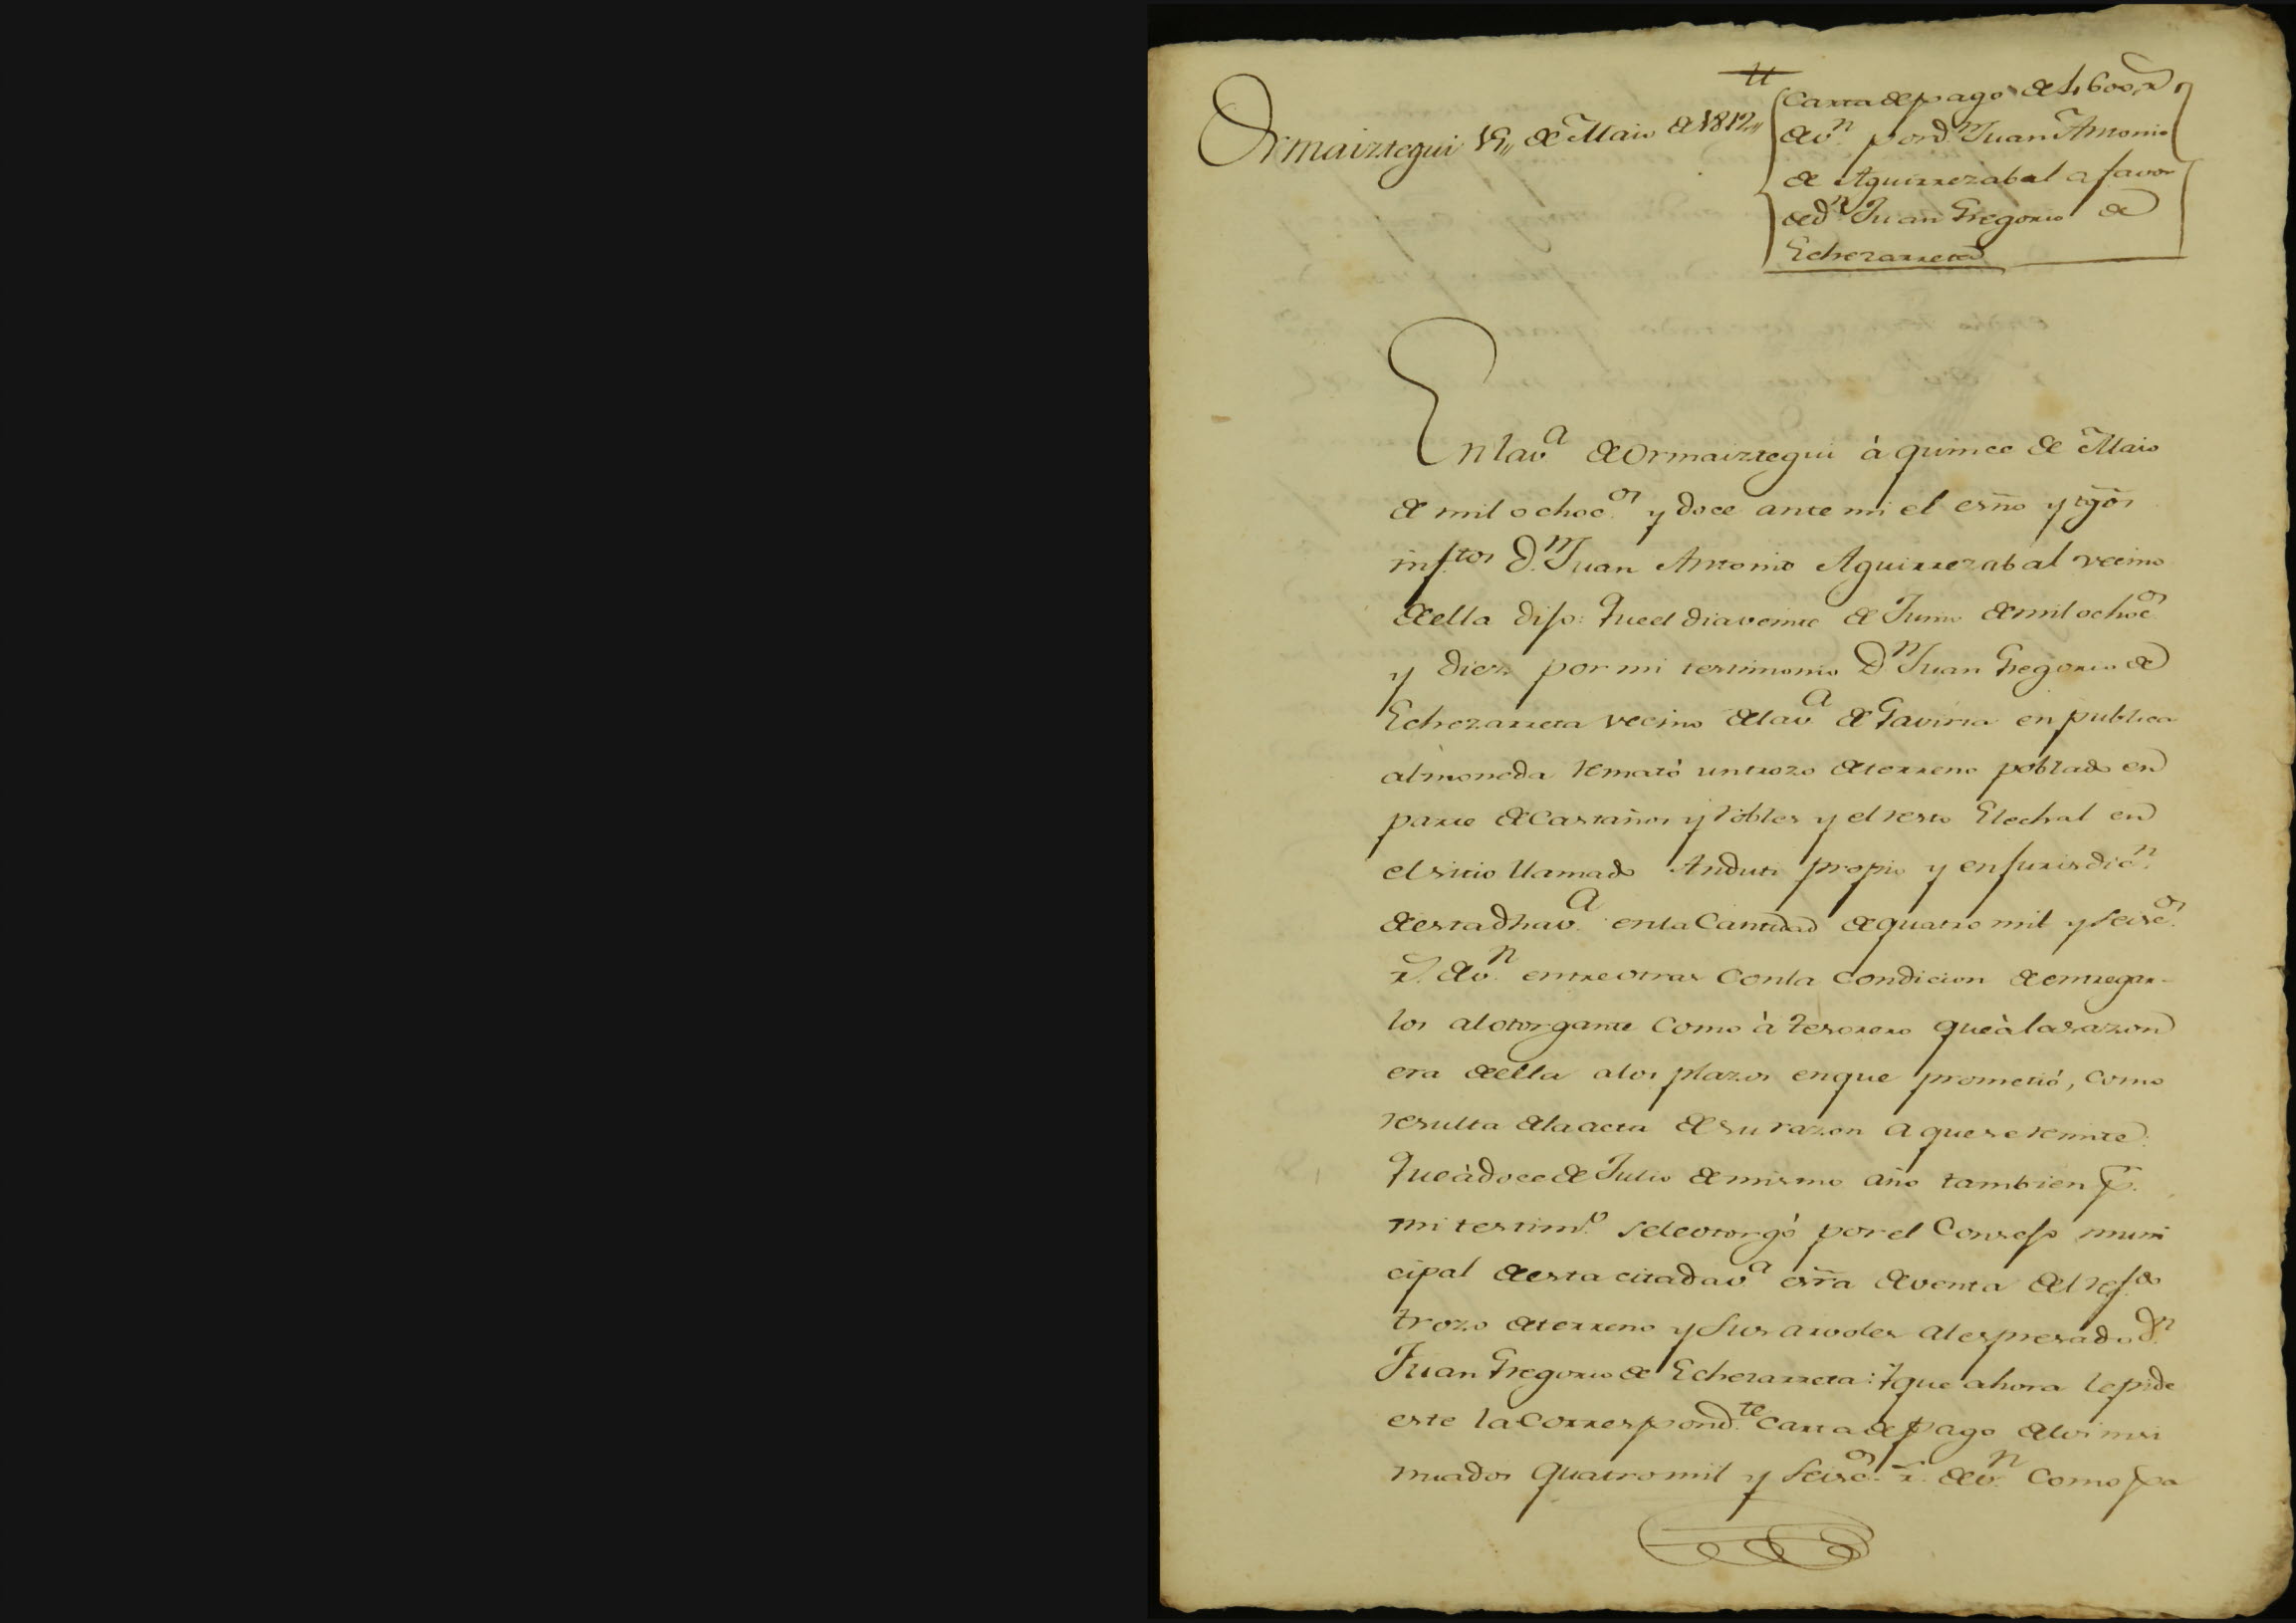 Ormaiztegui 15,, de Maio de 1812,,
Carta de pago de 4,600 r.s
de v.n por d.n Juan Antonio
de Aguirrezabal a favor
de d.n Juan Gregorio de
Echezarreta
En la v.a de Ormaiztegui à quince de Maio
de mil ochoc.os y doce ante mi el esño y tgõs
inf.tos D.n Juan Antonio Aguirrezabal vecino
de ella dijo: Que el dia veinte de Junio de mil ochoc.os
y diez por mi testimonio D.n Juan Gregorio de
Echezarreta vecino de la v.a de Gaviria en publica
almoneda remató un trozo de terreno poblado en
parte de Castaños y robles y el resto Elechal en
el sitio llamado Anduti propio y en jurisdic.n
de esta dha v.a en la Cantidad de quatro mil y seisc.os
r.s de v.n entre otras con la condicion de entregar-
los al otorgante como à Tesorero que à la sazon
era de ella a los plazos en que prometió, como
resulta de la acta de su razon a que se remite:
Que à doce de Julio de mismo año tambien p.r
mi testim.o se le otorgó por el Consejo muni
cipal de esta citada v.a esrra de venta del ref.do
trozo de terreno y sus arvoles al espresado d.n
Juan Gregorio de Echezarreta: Y que ahora le pide
este la correspond.te Carta de pago de los insi
nuados quatro mil y seisc.os r.s de v.n como pa